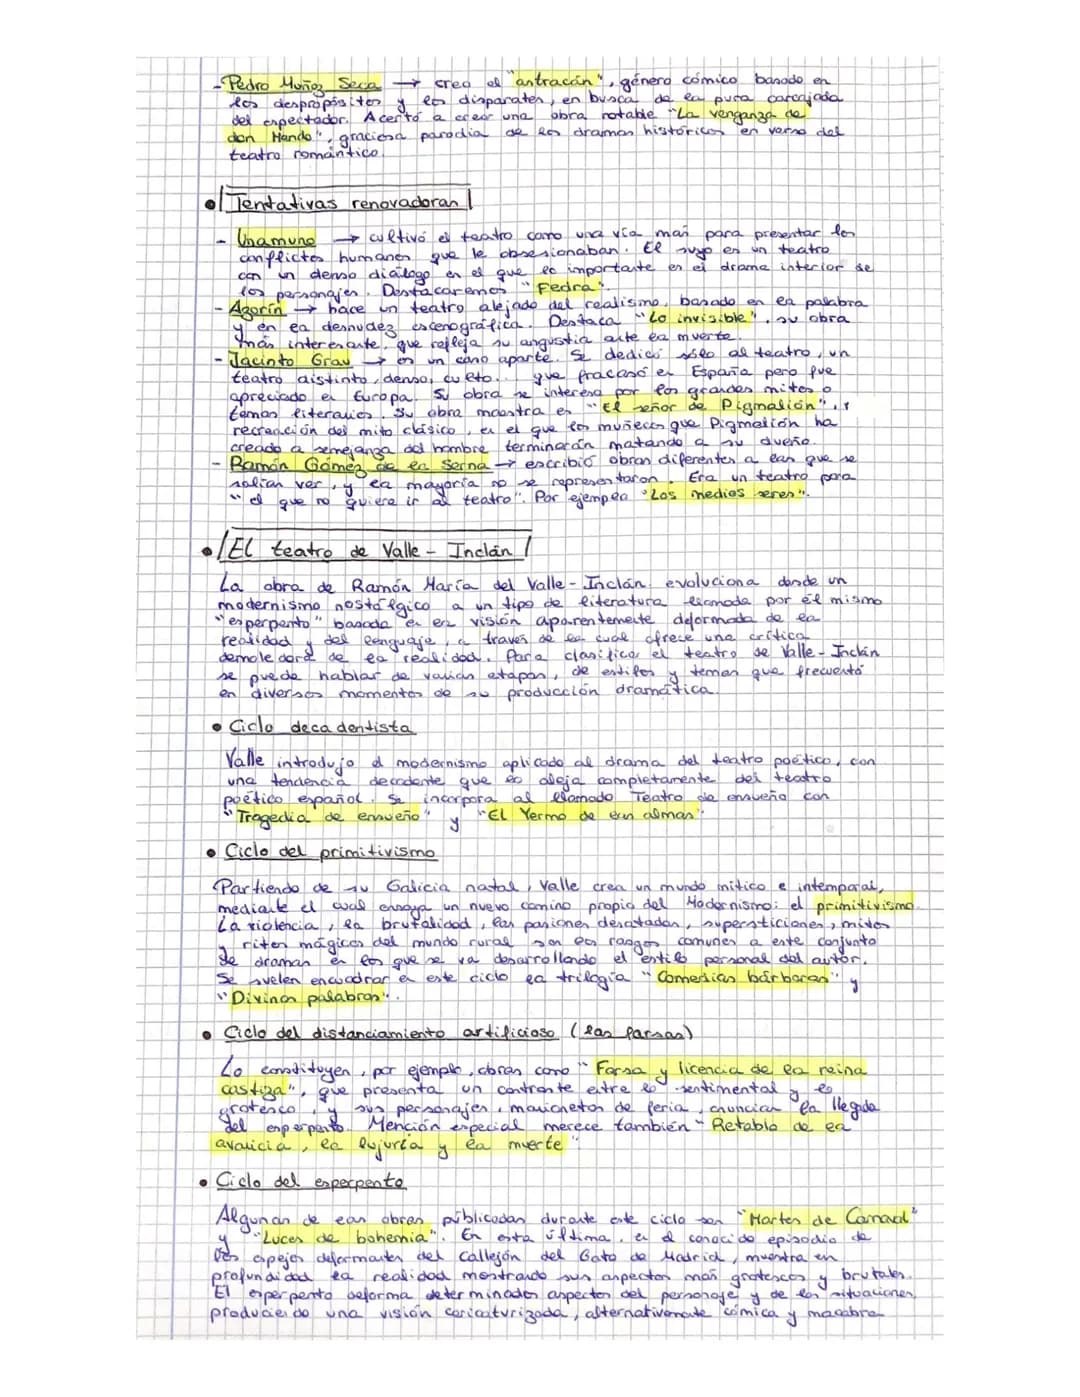 - Pedro Muñoz Seca → creo el "astracán", género cómico basado en
los despropósitos y los disparates, en busca de la pura carcajada
del espectador. Acertó a crear una obra notable "La venganza de
don Mendo", graciosa parodia de los dramas históricos en verso del
teatro romántico.
• Tentativas renovadoras
- Unamuno → cultivó el teatro como una vía más para presentar los
conflictos humanos que le obsesionaban. El suyo es un teatro
con un denso diálogo en el que lo importante es el drama interior de
los personajes. Destacaremos "Fedra".
- Azorín → hace un teatro alejado del realismo, basado en la palabra
y en la desnudez escenográfica. Destaca "Lo invisible", su obra
más interesante, que refleja su angustia ante la muerte.
- Jacinto Grau → es un caso aparte. Se dedicó sólo al teatro, un
teatro distinto, denso, culto... que fracasó en España pero fue
apreciado en Europa. Su obra se interesa por los grandes mitos o
temas literarios. Su obra maestra es "El señor de Pigmalión",
recreación del mito clásico, en el que los muñecos que Pigmalión ha
creado a semejanza del hombre terminarán matando a su dueño.
- Ramón Gómez de la Serna → escribió obras diferentes a las que se
solían ver, y la mayoría no se representaron. Era un teatro para
"el que no quiere ir al teatro". Por ejemplo "Los medios seres".
• El teatro de Valle - Inclán
La obra de Ramón María del Valle - Inclán evoluciona desde un
modernismo nostálgico a un tipo de literatura llamada por él mismo
"esperpento" basada en la visión aparentemente deformada de la
realidad y del lenguaje, a través de la cual ofrece una crítica
demoledora de la realidad. Para clasificar el teatro de Valle - Inclán
se puede hablar de varias etapas, de estilos y temas que frecuentó
en diversos momentos de su producción dramática.
• Ciclo decadentista
Valle introdujo el modernismo aplicado al drama del teatro poético, con
una tendencia decadente que lo aleja completamente del teatro
poético español. Se incorpora al llamado Teatro de ensueño con
"Tragedia de ensueño" y "El Yermo de las almas".
• Ciclo del primitivismo
Partiendo de su Galicia natal, Valle crea un mundo mítico e intemporal,
mediante el cual ensaya un nuevo camino propio del Modernismo: el primitivismo.
La violencia, la brutalidad, las pasiones desatadas, supersticiones, mitos
y ritos mágicos del mundo rural son los rasgos comunes a este conjunto
de dramas en los que se va desarrollando el estilo personal del autor.
Se suelen encuadrar a este ciclo la trilogía "Comedias bárbaras" y
"Divinas palabras".
• Ciclo del distanciamiento artificioso (las farsas)
Lo constituyen, por ejemplo, obras como "Farsa y licencia de la reina
castiza", que presenta un contraste entre lo sentimental y lo
grotesco, y sus personajes, marionetas de feria, anuncian la llegada
del esperpento. Mención especial merece también "Retablo de la
avaricia, la lujuria y la muerte".
• Ciclo del esperpento
Algunas de las obras públicadas durante este ciclo son "Martes de Carnaval"
y "Luces de bohemia". En esta última, en el conocido episodio de
los espejos deformantes del Callejón del Gato de Madrid, muestra en
profundidad la realidad mostrando sus aspectos más grotescos y brutales.
El esperpento deforma determinados aspectos del personaje y de las situaciones,
produciendo una visión caricaturizada, alternativamente cómica y macabra